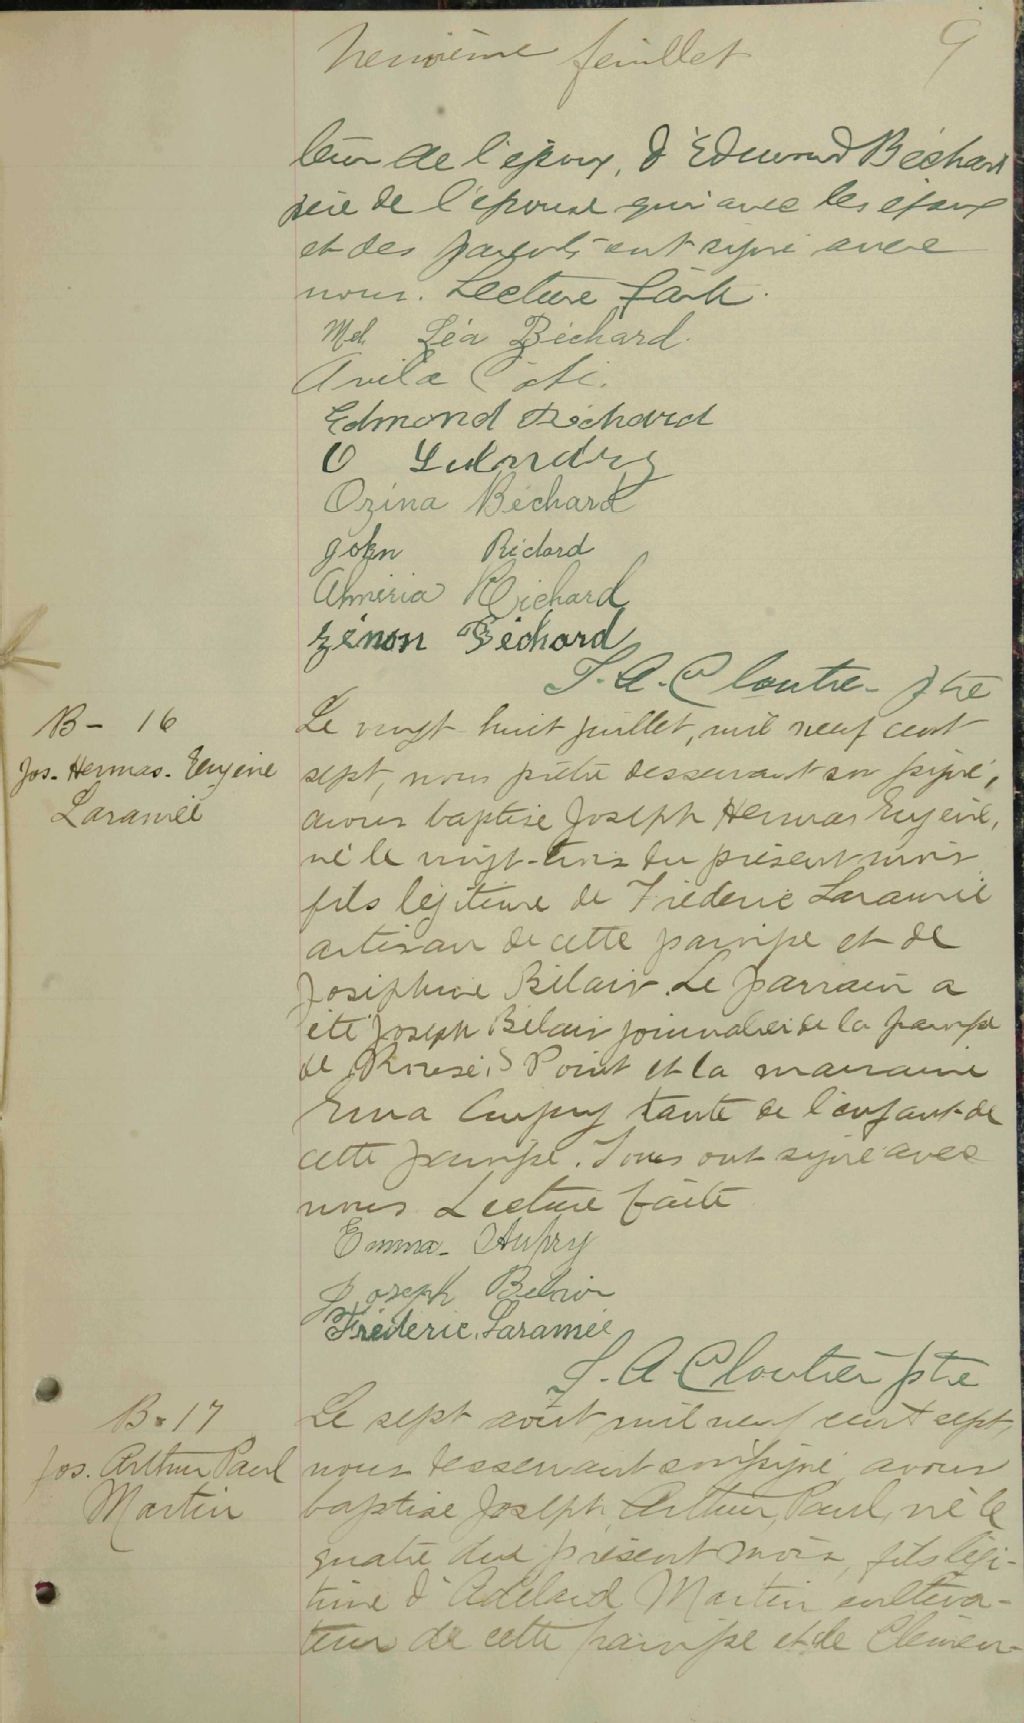 Neuvième feuillet 9
teur de l'époux, d'Edmond Béchard
père de l'épouse qui avec les époux
et des parents ont signé avec
nous. Lecture faite.
Léa Béchard.
Avila Côté.
Edmond Béchard
O Lalendrg
Ozina Béchard
John Richard
Almeria Richard
Zénon Béchard
J. A. Cloutier ptre
B - 16
Jos. Hermas. Eugène
Laramée
Le vingt huit juillet, mil neuf cent
sept, nous prêtre desservant soussigné,
avons baptisé Joseph Hermas Eugène,
né le vingt-trois du présent mois
fils légitime de Fréderic Laramée
artisan de cette paroisse et de
Josephine Bélair. Le parrain a
été Joseph Bélair journalier de la paroisse
de Rouses Point et la marraine
Emma Aupry tante de l'enfant de
cette paroisse. Tous ont signé avec
nous Lecture faite
Emma Aupry
Joseph Belair
Fréderic Laramée
J. A. Cloutier ptre
B. 17
Jos. Arthur Paul
Martin
Le sept août mil neuf cent sept,
nous desservant soussigné avons
baptisé Joseph, Arthur, Paul, né le
quatre du présent mois, fils légi-
time d'Adélard Martin cultiva-
teur de cette paroisse et de Clémen-